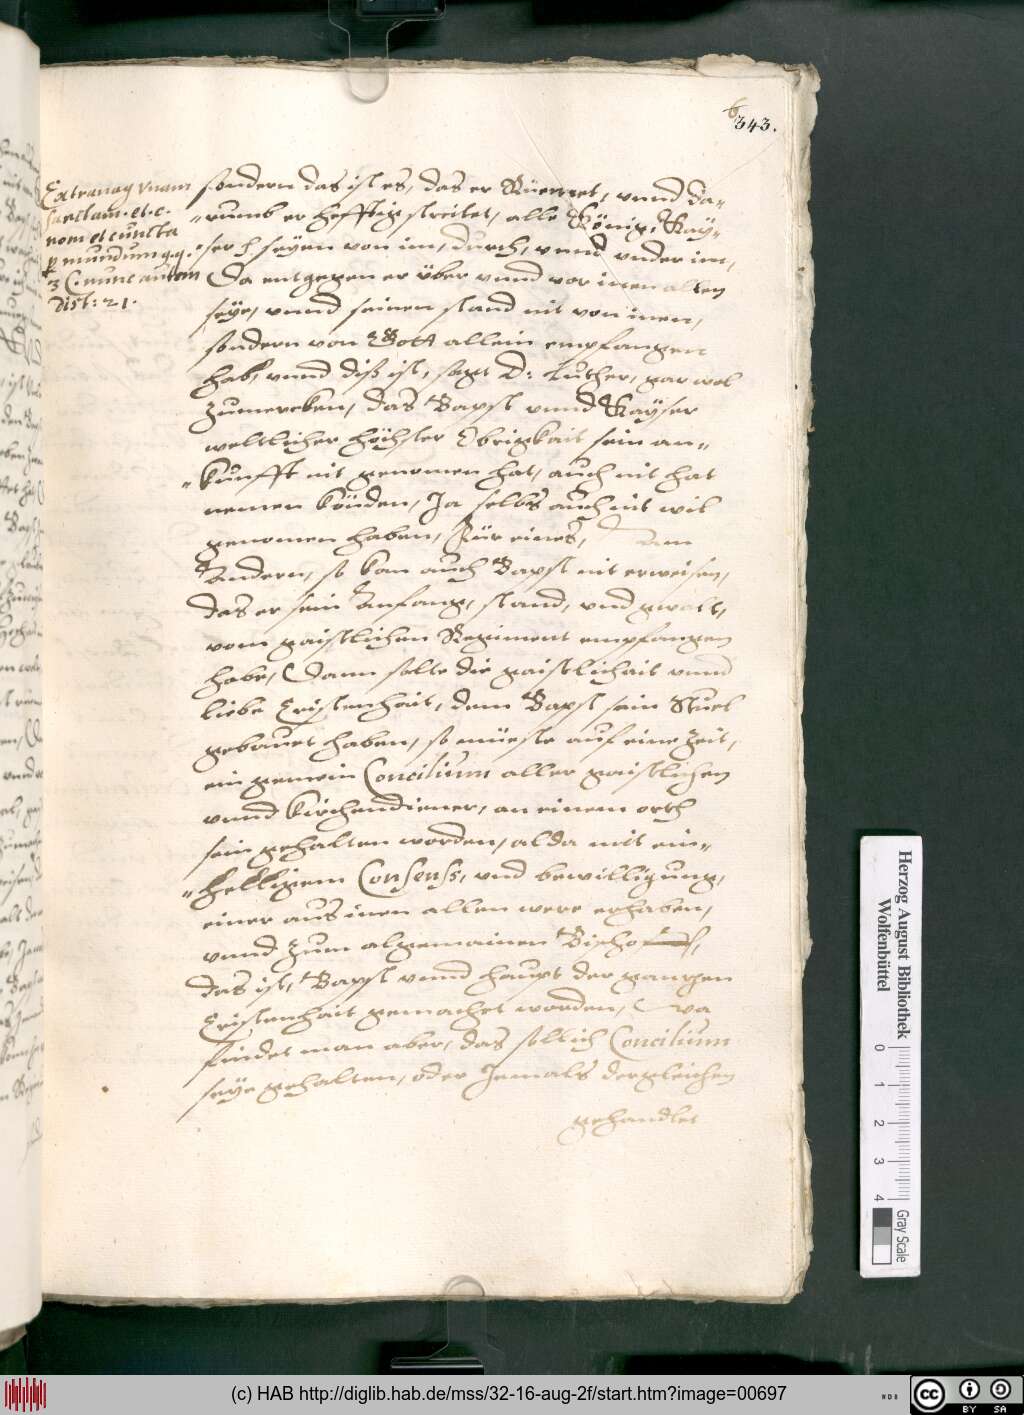 343.
Extravag vnam
sanctam. et. c.
nom et cuncta
p mundum q. q.
3 C. nunc autem
dist: 21.
sondern das ist es, das er Rüemet, vnnd da-
-rumb er hefftig streitet, alle König, Kay-
-ser h. seyen von im, durch, vnnd vnder im,
Da entgegen er über vnnd vor inen allen
seye, vnnd seinen stand nit von inen,
sondern von Gott allein empfangen
hab, vnnd diß ist, sagt D: Luther, gar wol
zumercken, das Bapst vnnd Kayser
weltlicher höchster Obrigkait sein an-
-kunfft nit genomen hat, auch nit hat
nemen könden, Ja selbs auch nit wil
genomen haben, Für eines, Am
Andern, so kan auch Bapst nit erweisen,
das er sein Anfang, stand, vnd gwalt,
vom gaistlichen Regiment empfangen
habe, Dann solte die gaistlichait vnnd
liebe Cristenhait, dem Bapst sein Stuel
gebauet haben, so müeste auf eine Zeit,
ein gemein Concilium aller gaistlichen
vnnd Kirchendiener, an einem orth
sein gehalten worden, alda mit ein-
-helligem Consenss, vnd bewilligung,
einer aus inen allen were erhaben,
vnnd zum algemainen Bischof,
das ist, Bapst vnnd haupt der gantzen
Cristenhait gemachet worden, Wa
findet man aber, das sollich Concilium
seye gehalten, oder Jemals dergleichen
gehandlet
Herzog August Bibliothek
Wolfenbüttel
0 1 2 3 4
Gray Scale
(c) HAB http://diglib.hab.de/mss/32-16-aug-2f/start.htm?image=00697
WDB
cc BY SA